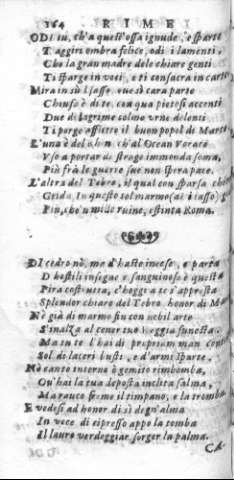 164 RIME
ODi tu, ch'a quest'ossa ignude, e sparte
T'aggiri ombra felice, odi i lamenti,
Che la gran madre de le chiare genti
Ti sparge in voci, e ti consacra in carte
Mira in sù l sasso, sparte
Chiuso è di te, con qua pietosi accenti
Due di lagrime colmo urne dolenti
Ti porge afflitto il buon popol di Marte
L'una è del ch'al Ocean vorace
Uso a portar di strage immonda soma,
Più frà le guerre sue non spera pace.
L'altra del Tebro, il qual con sparsa
Grida, In questo sol marmo (ai lasso)
Più, che'n ruine, estinta Roma.
DI cedro nò, ma d'haste incese, e parta
D'hostili insegne e sanguinose è questa
Pira costrutta, c'hoggi a te s'appresta
Splendor chiaro del Tebro honor di Mar
Nè già di marmo fin con nobil arte
S'inalza al cener tuo reggia funesta.
Ma tu te l'hai di proprium man
Sol di laceri busti, e d'armi sparte,
Nè canto intorno è gemito rimbomba,
Ou'hai la tua deposta inclita salma,
Ma rauco freme il timpano, e la tromba
E vedesi ad honor di sì degn'alma
In vece di cipresso appo la tomba
Il lauro verdeggiar, sorger la palma.
CA